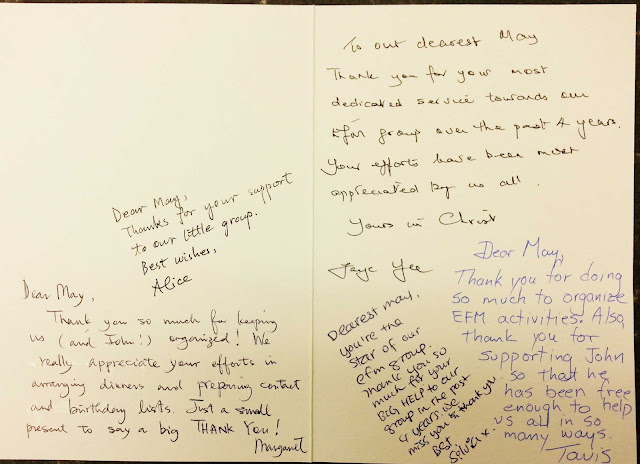 Dear May,
Thanks for your support
to our little group.
Best wishes,
Alice
Dear May,
Thank you so much for keeping
us (and John!) organized! We
really appreciate your efforts in
arranging dinners and preparing contact
and birthday lists. Just a small
present to say a big THANK YOU!
Margaret
To our dearest May
Thank you for your most
dedicated service towards our
EfM group over the past 4 years.
Your efforts have been most
appreciated by us all.
Yours in Christ
Yee
Dearest May,
you're the
star of our
efm group.
Thank you so
much for your
BIG HELP to our
group in the past
4 years. We
miss you & thank you
Best
Silvia x.
Dear May,
Thank you for doing
so much to organize
EFM activities. Also,
thank you for
supporting John
so that he
has been free
enough to help
us all in so
many ways.
Tavis